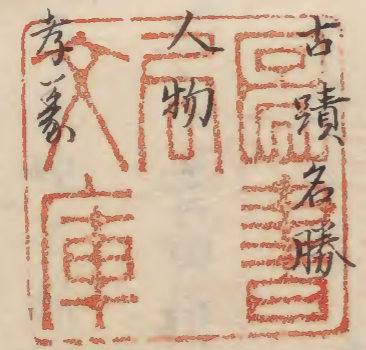 古蹟名勝
人物
孝義
圖書
局
文庫